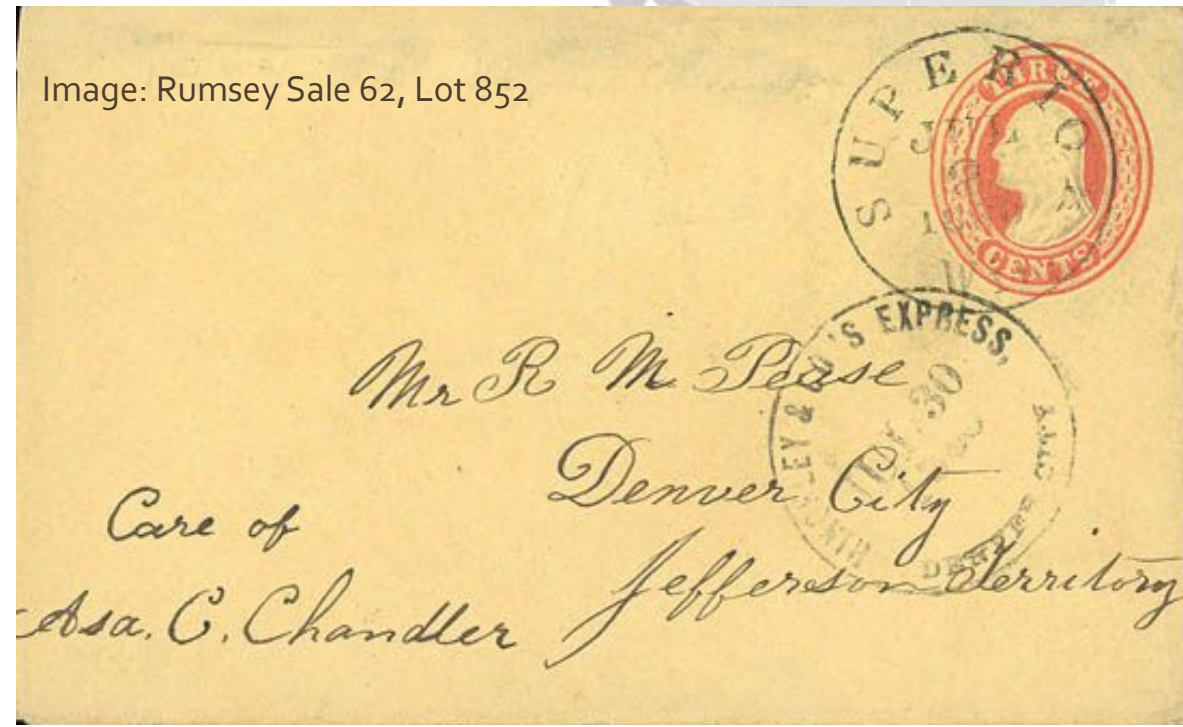 Image: Rumsey Sale 62, Lot 852
SUPERIOR
JUL
CENTS
HINCKLEY & CO'S EXPRESS,
30
DENVER CITY
Mr R M Pease
Denver City
Jefferson Territory
Care of
Asa. C. Chandler